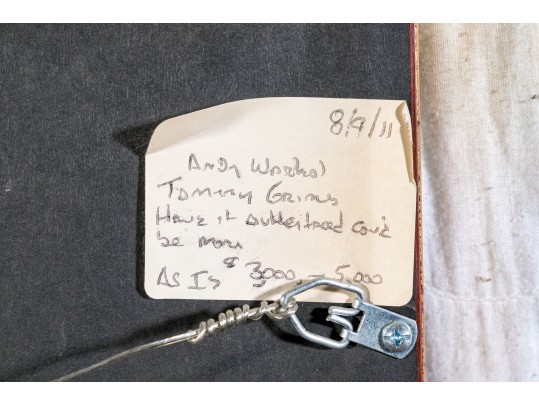 8/9/11
Andy Warhol
Tommy Grimes
Have it autheitaced coul'd
be more
As Is $ 3,000 - 5,000